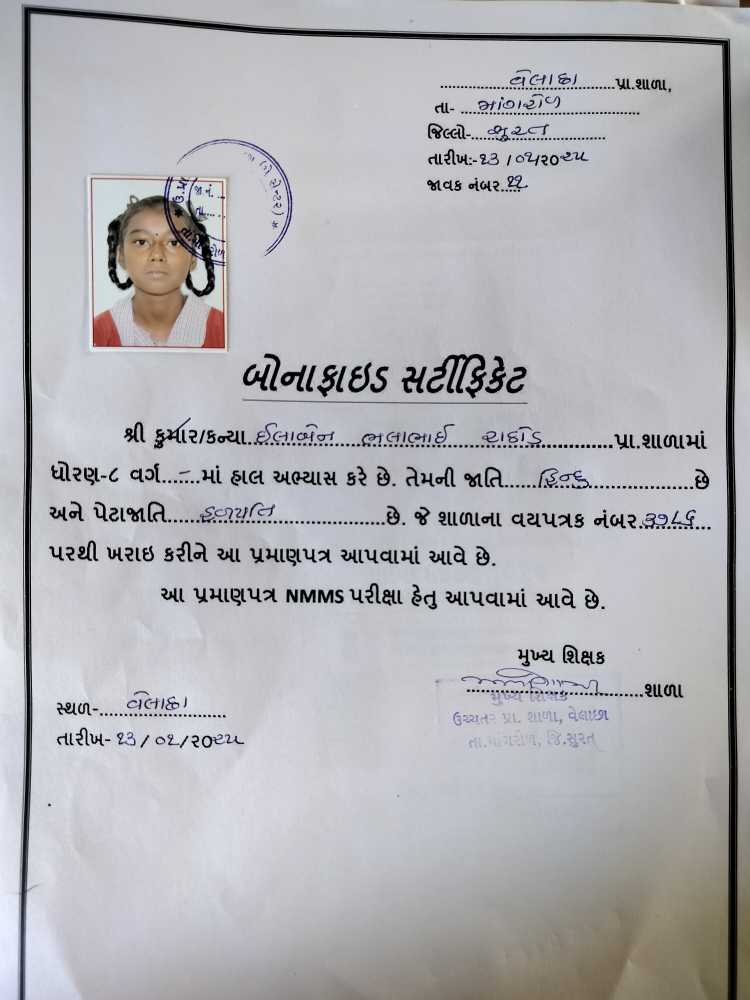 વેલાછા પ્રા.શાળા,
તા- માંગરોળ
જિલ્લો- સુરત
તારીખ:-૨૩ / ૦૧/૨૦૨૫
જાવક નંબર.૨૨
જા.નં.
તા.
બોનાફાઇડ સર્ટીફિકેટ
શ્રી કુમાર/કન્યા ઈલાબેન ભલાભાઈ રાઠોડ પ્રા.શાળામાં
ધોરણ-૮ વર્ગ.....–..માં હાલ અભ્યાસ કરે છે. તેમની જાતિ હિન્દુ છે
અને પેટાજાતિ હળપતિ છે. જે શાળાના વયપત્રક નંબર ૩૭૮૬
પરથી ખરાઇ કરીને આ પ્રમાણપત્ર આપવામાં આવે છે.
આ પ્રમાણપત્ર NMMS પરીક્ષા હેતુ આપવામાં આવે છે.
મુખ્ય શિક્ષક
શાળા
મુખ્ય શિક્ષક
ઉચ્ચતર પ્રા. શાળા, વેલાછા
તા.માંગરોળ, જિ.સુરત
સ્થળ- વેલાછા
તારીખ- ૨૩ / ૦૧/૨૦૨૫